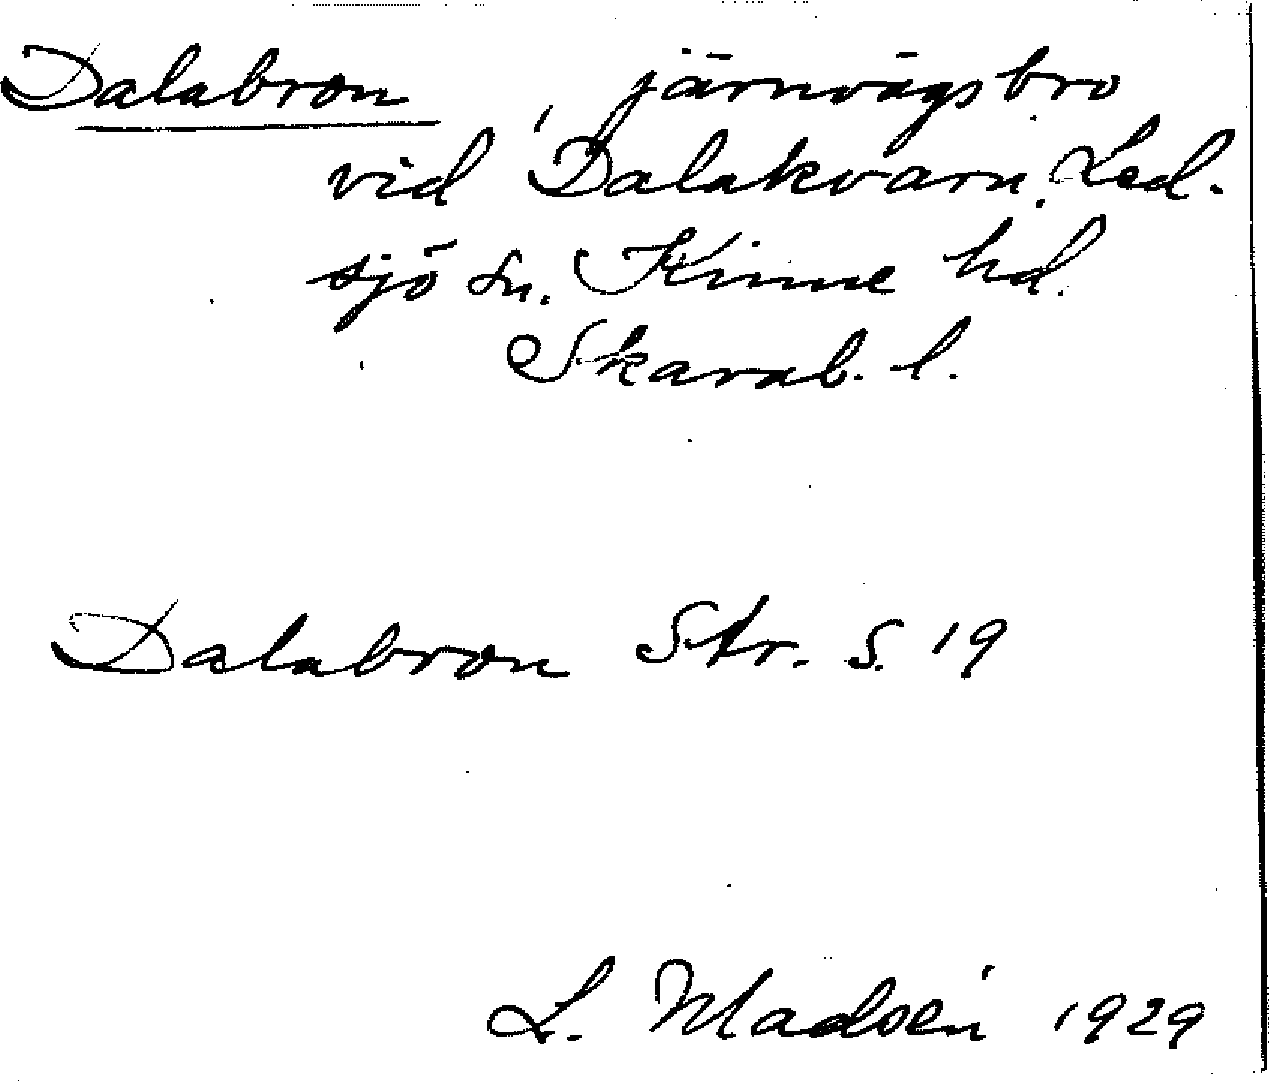 Dalabron, järnvägsbro
vid Dalakvarn, Led-
sjö sn. Kinne hd.
Skarab. l.
Dalabron Str. S. 19
L. Madsén 1929